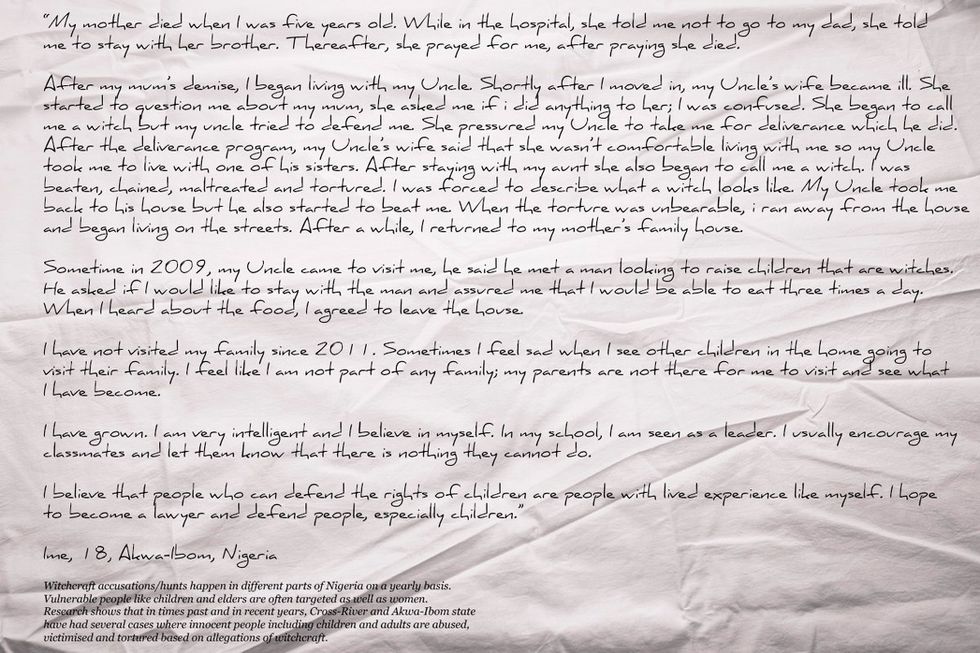 “My mother died when I was five years old. While in the hospital, she told me not to go to my dad, she told
me to stay with her brother. Thereafter, she prayed for me, after praying she died.
After my mum's demise, I began living with my Uncle. Shortly after I moved in, my Uncle's wife became ill. She
started to question me about my mum, she asked me if i did anything to her; I was confused. She began to call
me a witch but my uncle tried to defend me. She pressured my Uncle to take me for deliverance which he did.
After the deliverance program, my Uncle's wife said that she wasn't comfortable living with me so my Uncle
took me to live with one of his sisters. After staying with my aunt she also began to call me a witch. I was
beaten, chained, maltreated and tortured. I was forced to describe what a witch looks like. My Uncle took me
back to his house but he also started to beat me. When the torture was unbearable, i ran away from the house
and began living on the streets. After a while, I returned to my mother's family house.
Sometime in 2009, my Uncle came to visit me, he said he met a man looking to raise children that are witches.
He asked if I would like to stay with the man and assured me that I would be able to eat three times a day.
When I heard about the food, I agreed to leave the house.
I have not visited my family since 2011. Sometimes I feel sad when I see other children in the home going to
visit their family. I feel like I am not part of any family; my parents are not there for me to visit and see what
I have become.
I have grown. I am very intelligent and I believe in myself. In my school, I am seen as a leader. I usually encourage my
classmates and let them know that there is nothing they cannot do.
I believe that people who can defend the rights of children are people with lived experience like myself. I hope
to become a lawyer and defend people, especially children.”
Ime, 18, Akwa-Ibom, Nigeria
Witchcraft accusations/hunts happen in different parts of Nigeria on a yearly basis.
Vulnerable people like children and elders are often targeted as well as women.
Research shows that in times past and in recent years, Cross-River and Akwa-Ibom state
have had several cases where innocent people including children and adults are abused,
victimised and tortured based on allegations of witchcraft.